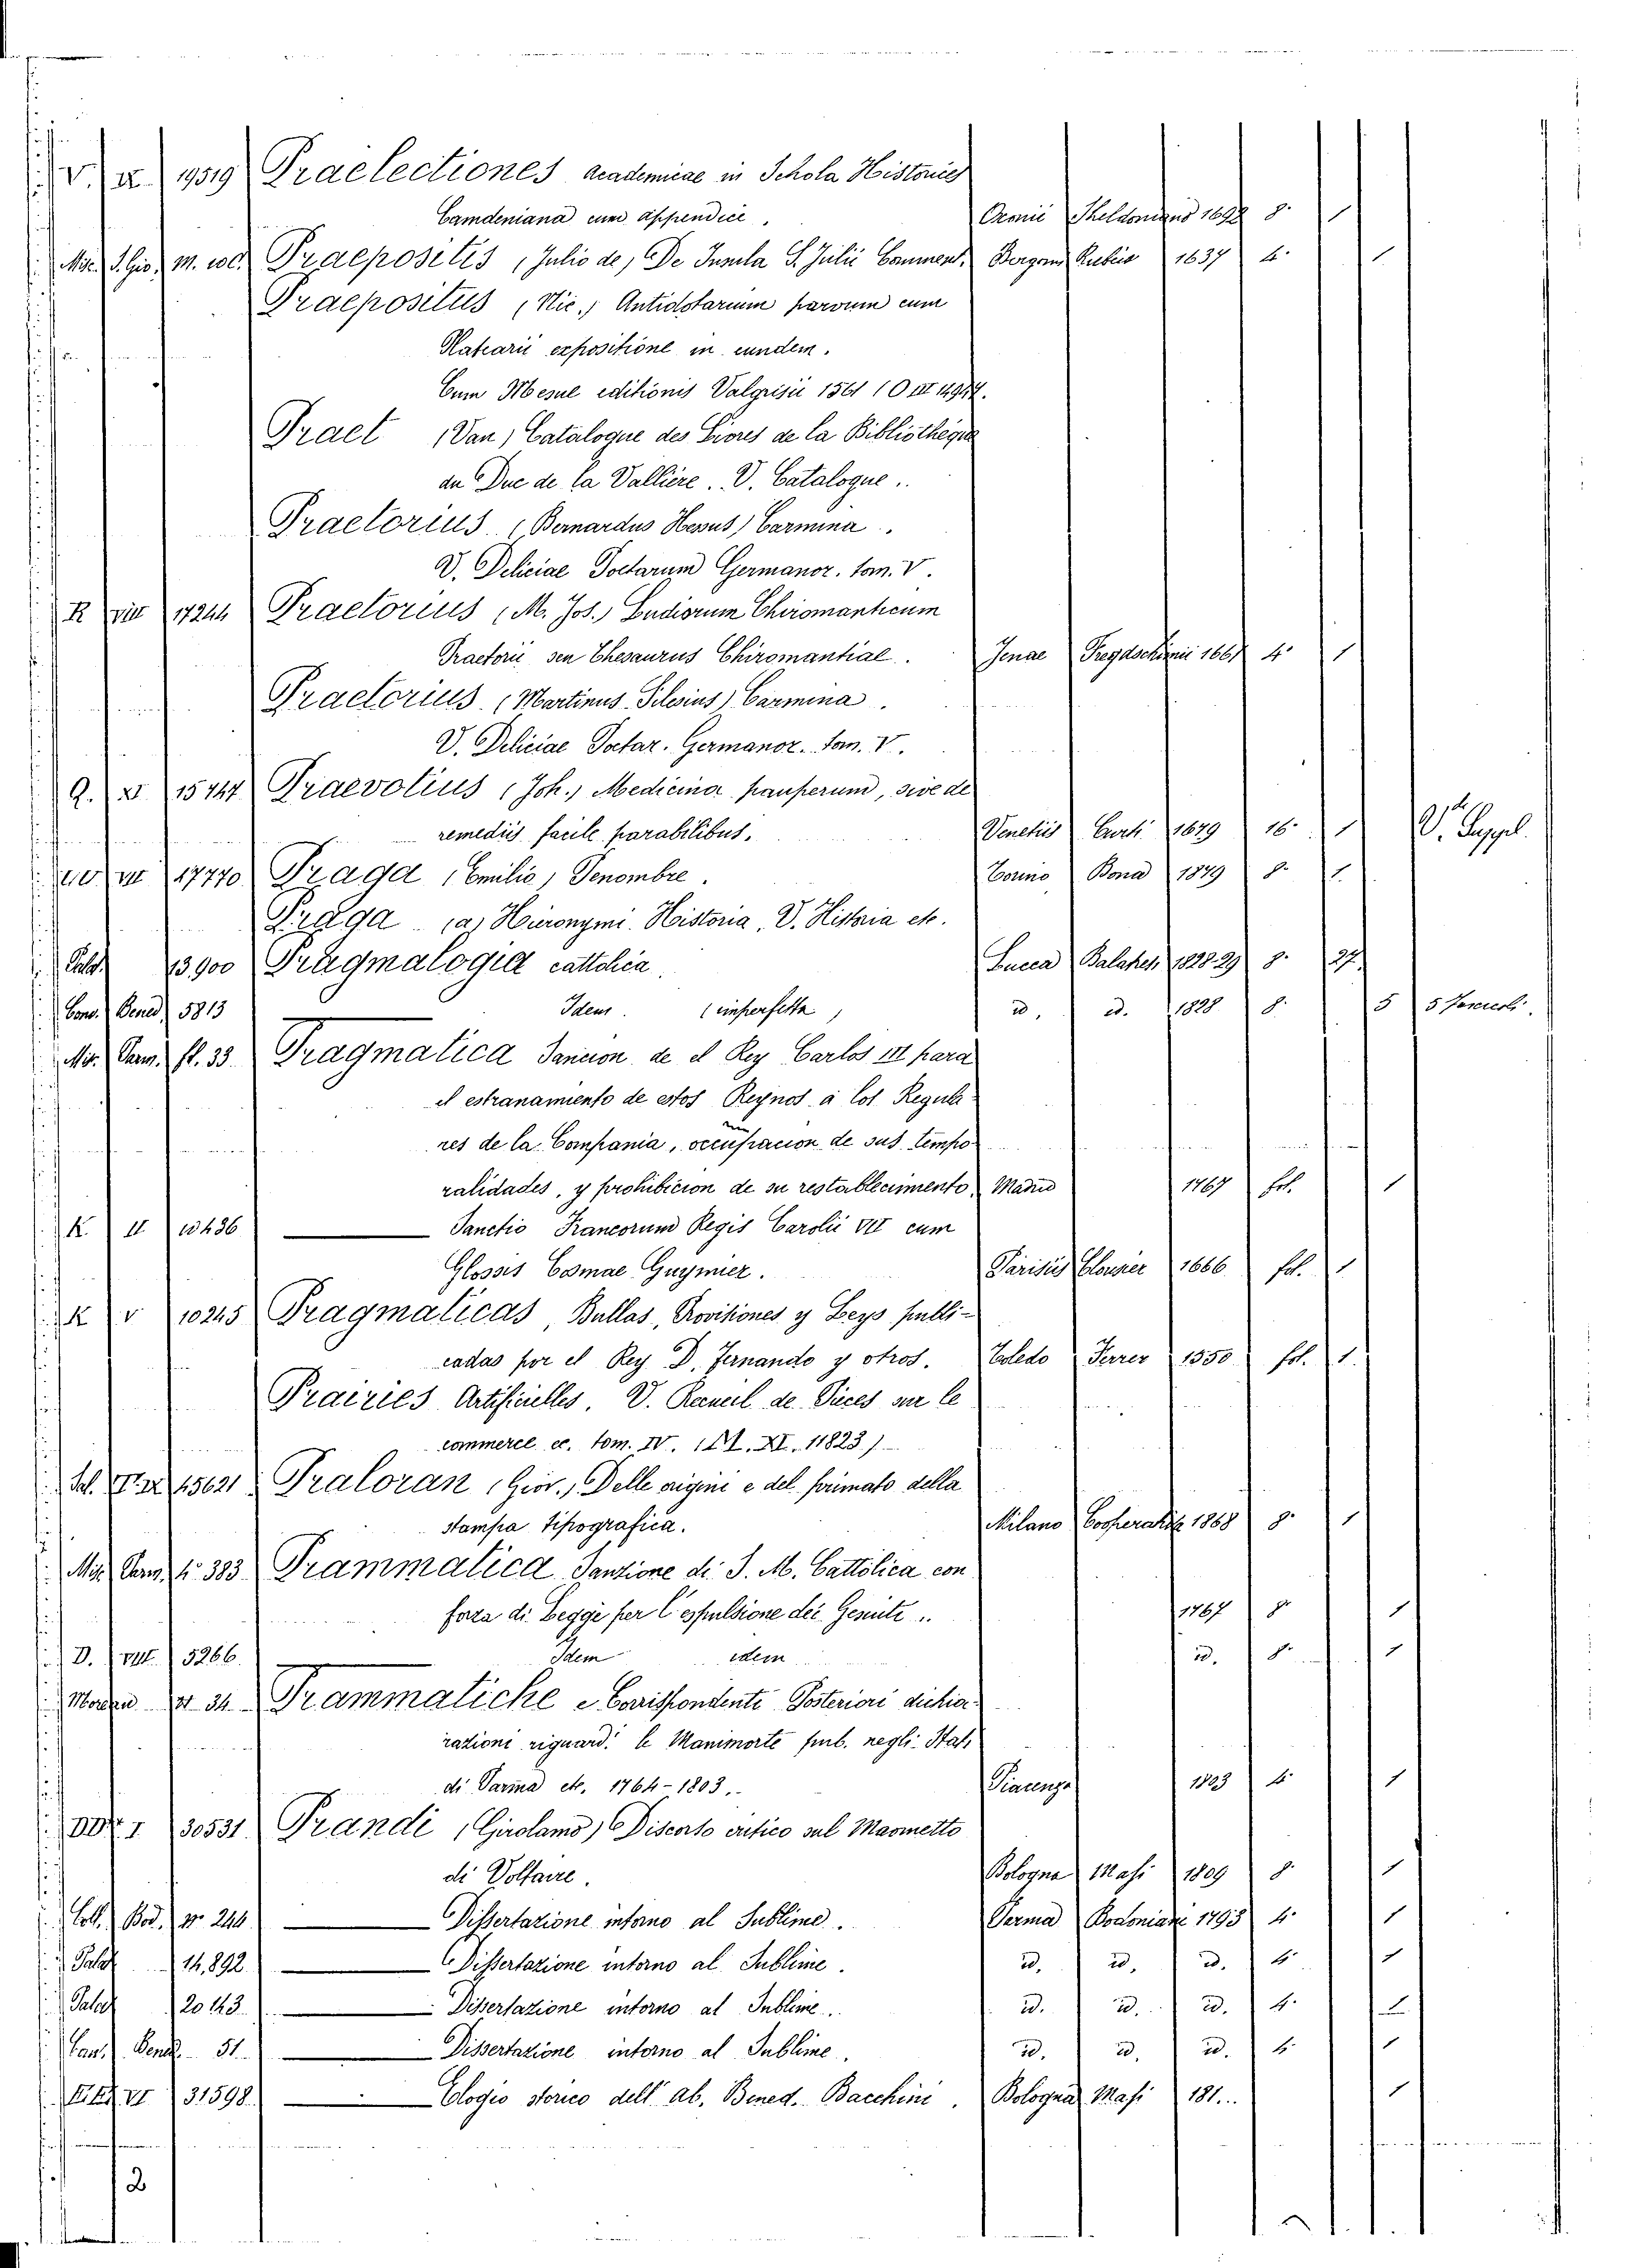 V. IX 19519 Praelectiones academicae in Schola Historices
Camdeniana cum appendice. Oxonii Sheldoniano 1692 8º 1
Misc. S. Gio. M. Praepositis (Julio de) De Insula S. Julii Comment. Bergomi Rubeis 1637 4º 1
Praepositus (Nic.) Antidotarium parvum cum
Platearii expositione in eundem.
Cum Mesue editionis Valgrisii 1561 (O III
Praet (Van) Catalogue des Livres de la Bibliothèque
du Duc de la Vallière. V. Catalogue.
Praetorius (Bernardus Hesus) Carmina.
V. Deliciae Poetarum Germanor. tom. V.
R VIII 17244 Praetorius (M. Jos.) Ludiorum Chiromanticum
Praetorii seu Thesaurus Chiromantiae. Jenae 1661 4º 1
Praetorius (Martinus Silesius) Carmina.
V. Deliciae Poetar. Germanor. tom. V.
Q. XI 15744 Praevotius (Joh.) Medicina pauperum, sive de
remediis facile parabilibus. Venetiis Curti 1679 16º 1 V. Suppl.
VII 17770 Praga (Emilio) Penombre. Torino Bona 1879 8º 1
Praga (a) Hieronymi Historia, V. Historia etc.
Palat. 13900 Pragmalogia cattolica. Lucca Balatres. 1828-29 8º 27
Conv. Bened. 5813 Idem. (imperfetta) id. id. 1828 8º 5 5 fascicoli.
Mis. Parm. fl. 33 Pragmatica Sancion de el Rey Carlos III para
el estranamiento de estos Reynos a los Regula-
res de la Compania, occupacion de sus tempo-
ralidades, y prohibicion de su restablecimento. Madrid 1767 fol. 1
K. II 10436 Sanctio Francorum Regis Carolii VII cum
Glossis Cosmae Guymier. Parisiis Clousier 1666 fol. 1
K V 10245 Pragmaticas, Bullas, Provisiones y Leys publi-
cadas por el Rey D. Fernando y otros. Toledo Ferrer 1550 fol. 1
Prairies Artificielles. V. Recueil de Pièces sur le
commerce ec. tom. IV. XI. 11823)
15621 Praloran (Giov.) Delle origini e del primato della
stampa tipografica. Milano Cooperativa 1868 8º 1
Mis. Parm. 4º 383 Prammatica Sanzione di S. M. Cattolica con
forza di Legge per l'espulsione dei Gesuiti. 1767 8º 1
D. VIII. 5266 Idem idem id. 8º 1
34 Prammatiche e Corrispondenti Posteriori dichia-
razioni riguard. le Manimorte pub. negli Stati
di Parma etc. 1764-1803. Piacenza 1803 4º 1
I 30531 Prandi (Girolamo) Discorso critico sul Maometto
di Voltaire. Bologna Masi 1809 8º 1
Coll. Bod. nº 244 Dissertazione intorno al Sublime. Parma Bodoniane 1793 4º 1
Palat 14,892 Dissertazione intorno al Sublime. id. id. id. 4º 1
Palat 20143 Dissertazione intorno al Sublime. id. id. id. 4º 1
Conv. Bened. 51 Dissertazione intorno al Sublime. id. id. id. 4º 1
VI 31598 Elogio storico dell' ab. Bened. Bacchini. Bologna Masi 181.. 1
2